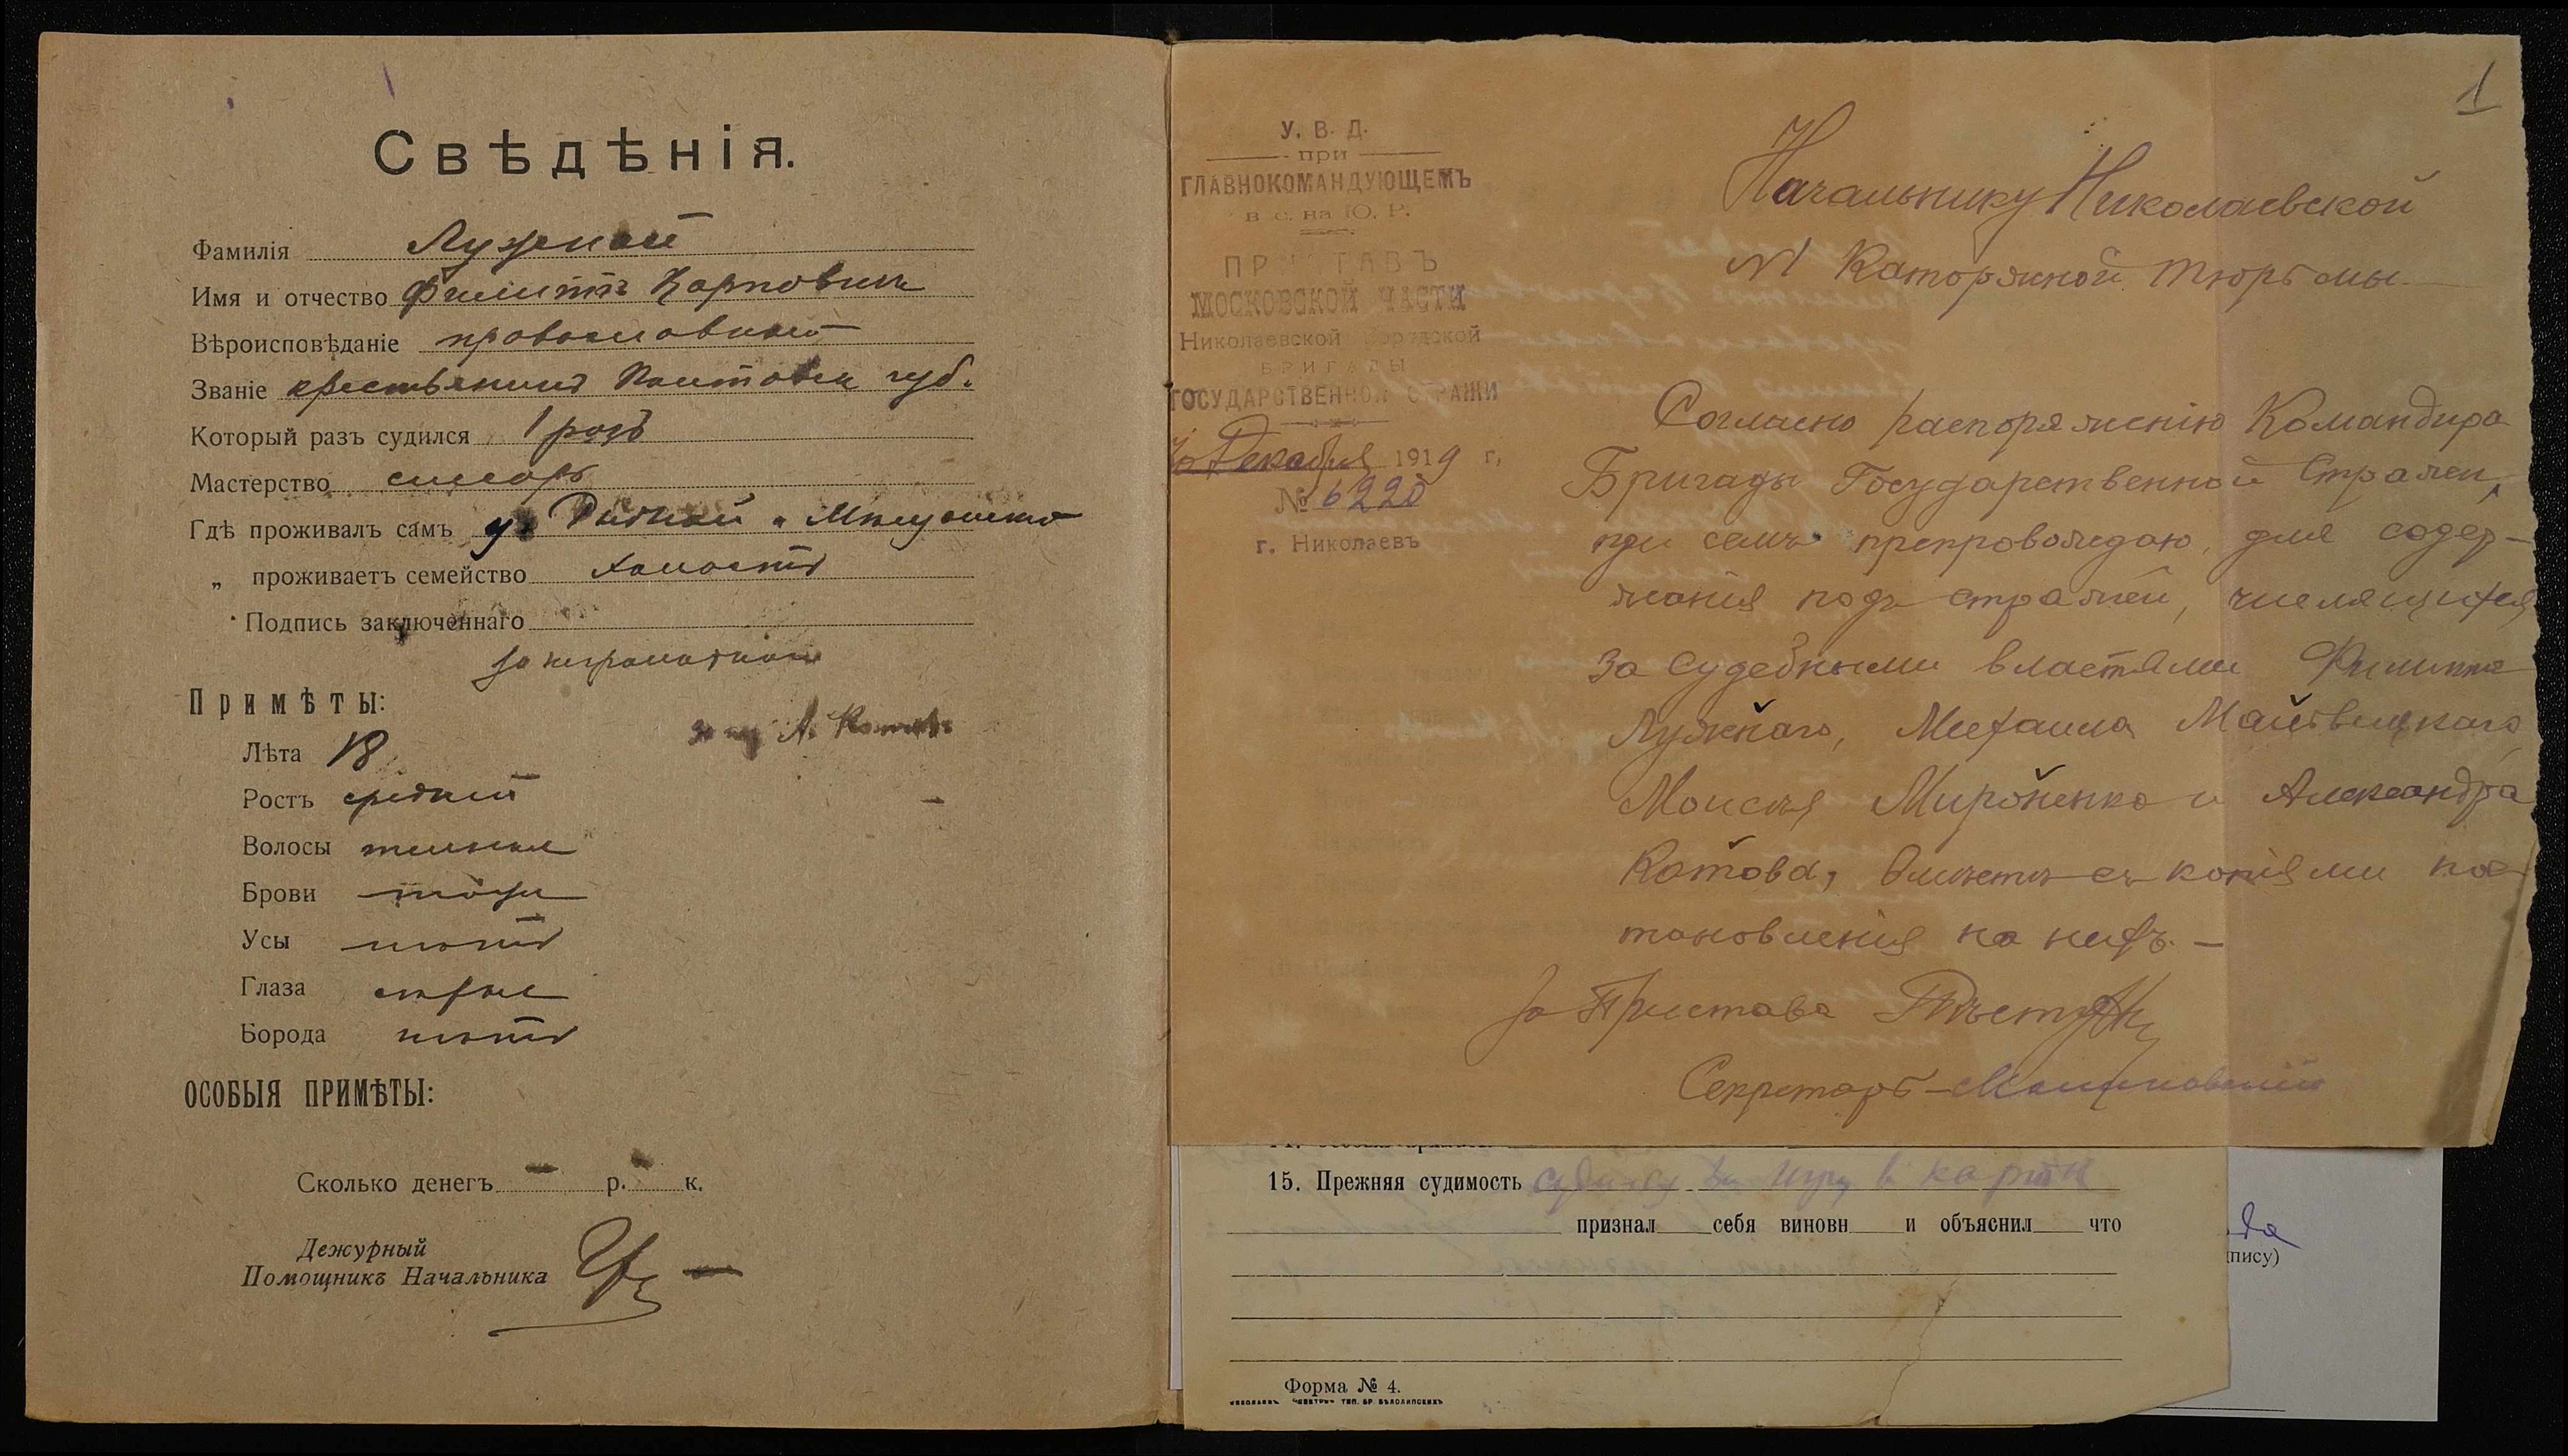 Свѣдѣнія.
Фамилія Лужный
Имя и отчество Филиппъ Карповичъ
Вѣроисповѣданіе православный
Званіе крестьянинъ Полтавск губ.
Который разъ судился 1 разъ
Мастерство слесарь
Гдѣ проживалъ самъ у.
„ проживаетъ семейство холостъ
Подпись заключеннаго
за неграмотнаго
А. Котовъ
Примѣты:
Лѣта 18
Ростъ средній
Волосы темные
Брови тоже
Усы нѣтъ
Глаза сѣрые
Борода нѣтъ
ОСОБЫЯ ПРИМѢТЫ:
Сколько денегъ — р. — к.
Дежурный
Помощникъ Начальника
1
У. В. Д.
при
ГЛАВНОКОМАНДУЮЩЕМЪ
в с. на Ю. Р.
ПРИСТАВЪ
МОСКОВСКОЙ ЧАСТИ
Николаевской Городской
БРИГАДЫ
ГОСУДАРСТВЕННОЙ СТРАЖИ
Декабря 1919 г.
№ 6220
г. Николаевъ
Начальнику Николаевской
Каторжной тюрьмы
Согласно распоряженію Командира
Бригады Государственной Стражи,
при семъ препровождаю, для содер-
жанія подъ стражей, числящихся
за судебными властями Филиппа
Лужнаго, Михаила
Моисея Мироненко и Александра
Котова, вмѣстѣ съ копіями пос
тановленія на нихъ. —
За Пристава
Секретарь
15. Прежняя судимость судился за игру в карты
признал себя виновн и объяснил что
Форма № 4.
пису)